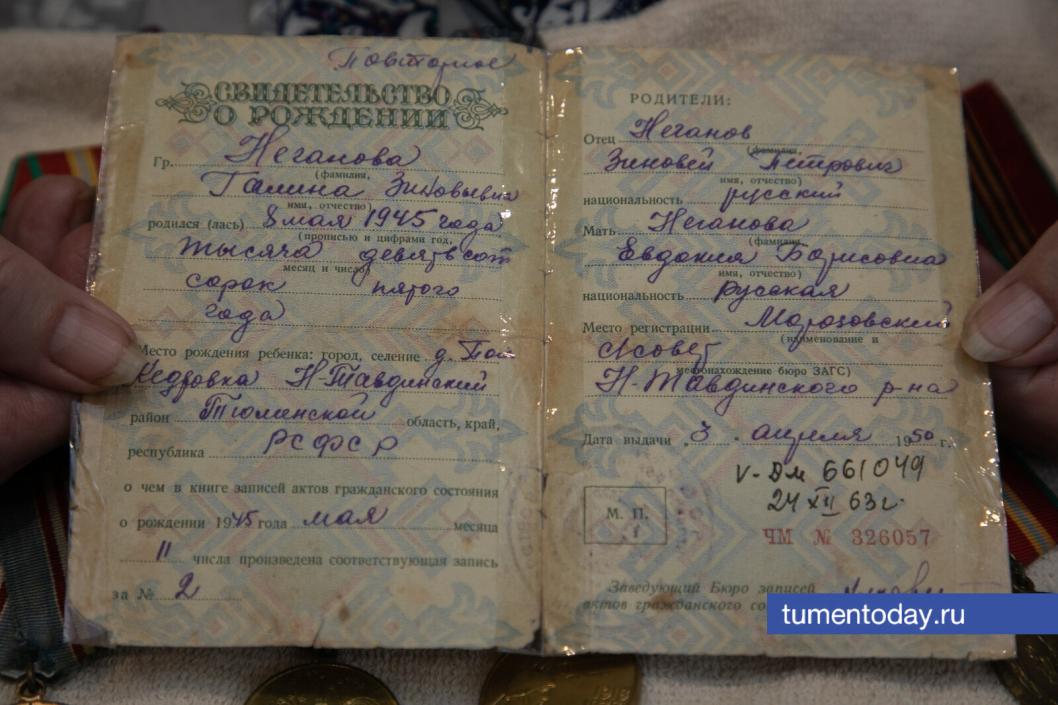 Повторное
СВИДЕТЕЛЬСТВО
О РОЖДЕНИИ
Гр. Неганова
(фамилия,
Галина Зиновьевна
имя, отчество)
родился (лась) 8 мая 1945 года
(прописью и цифрами год,
тысяча девятьсот
месяц и число)
сорок пятого
года
Место рождения ребенка: город, селение д.
Кедровка Н-Тавдинский
район Тюменской область, край,
республика РСФСР
о чем в книге записей актов гражданского состояния
о рождении 1945 года мая месяца
11 числа произведена соответствующая запись
за № 2
РОДИТЕЛИ:
Отец Неганов
(фамилия,
Зиновей Петрович
имя, отчество)
национальность русский
Мать Неганова
(фамилия,
Евдокия Борисовна
имя, отчество)
национальность русская
Место регистрации Морозовский
(наименование и
с/совет
местонахождение бюро ЗАГС)
Н-Тавдинского р-на
Дата выдачи 3 апреля 1950 г.
V-ДМ 661049
24 XII 63г.
М. П.
ЧМ № 326057
Заведующий Бюро записей
актов гражданского со
tumentoday.ru